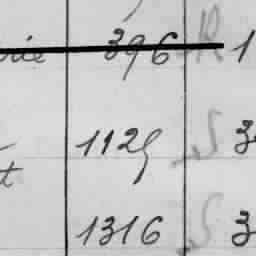 396 R 1
1129 S 3
t
1316 S 3